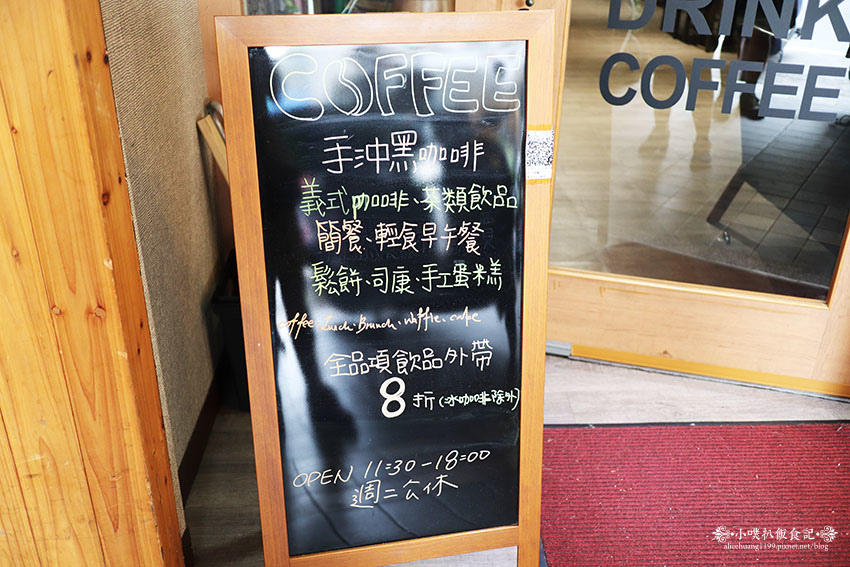 COFFEE
手沖黑咖啡
義式咖啡、茶類飲品
簡餐、輕食早午餐
鬆餅、司康、手工蛋糕
coffee. Lunch. Brunch. waffle. cake
全品項飲品外帶
8折(冰咖啡除外)
OPEN 11:30-18:00
週二公休
DRINK
COFFEE
小噗扒飯食記
alicehuang1199.pixnet.net/blog